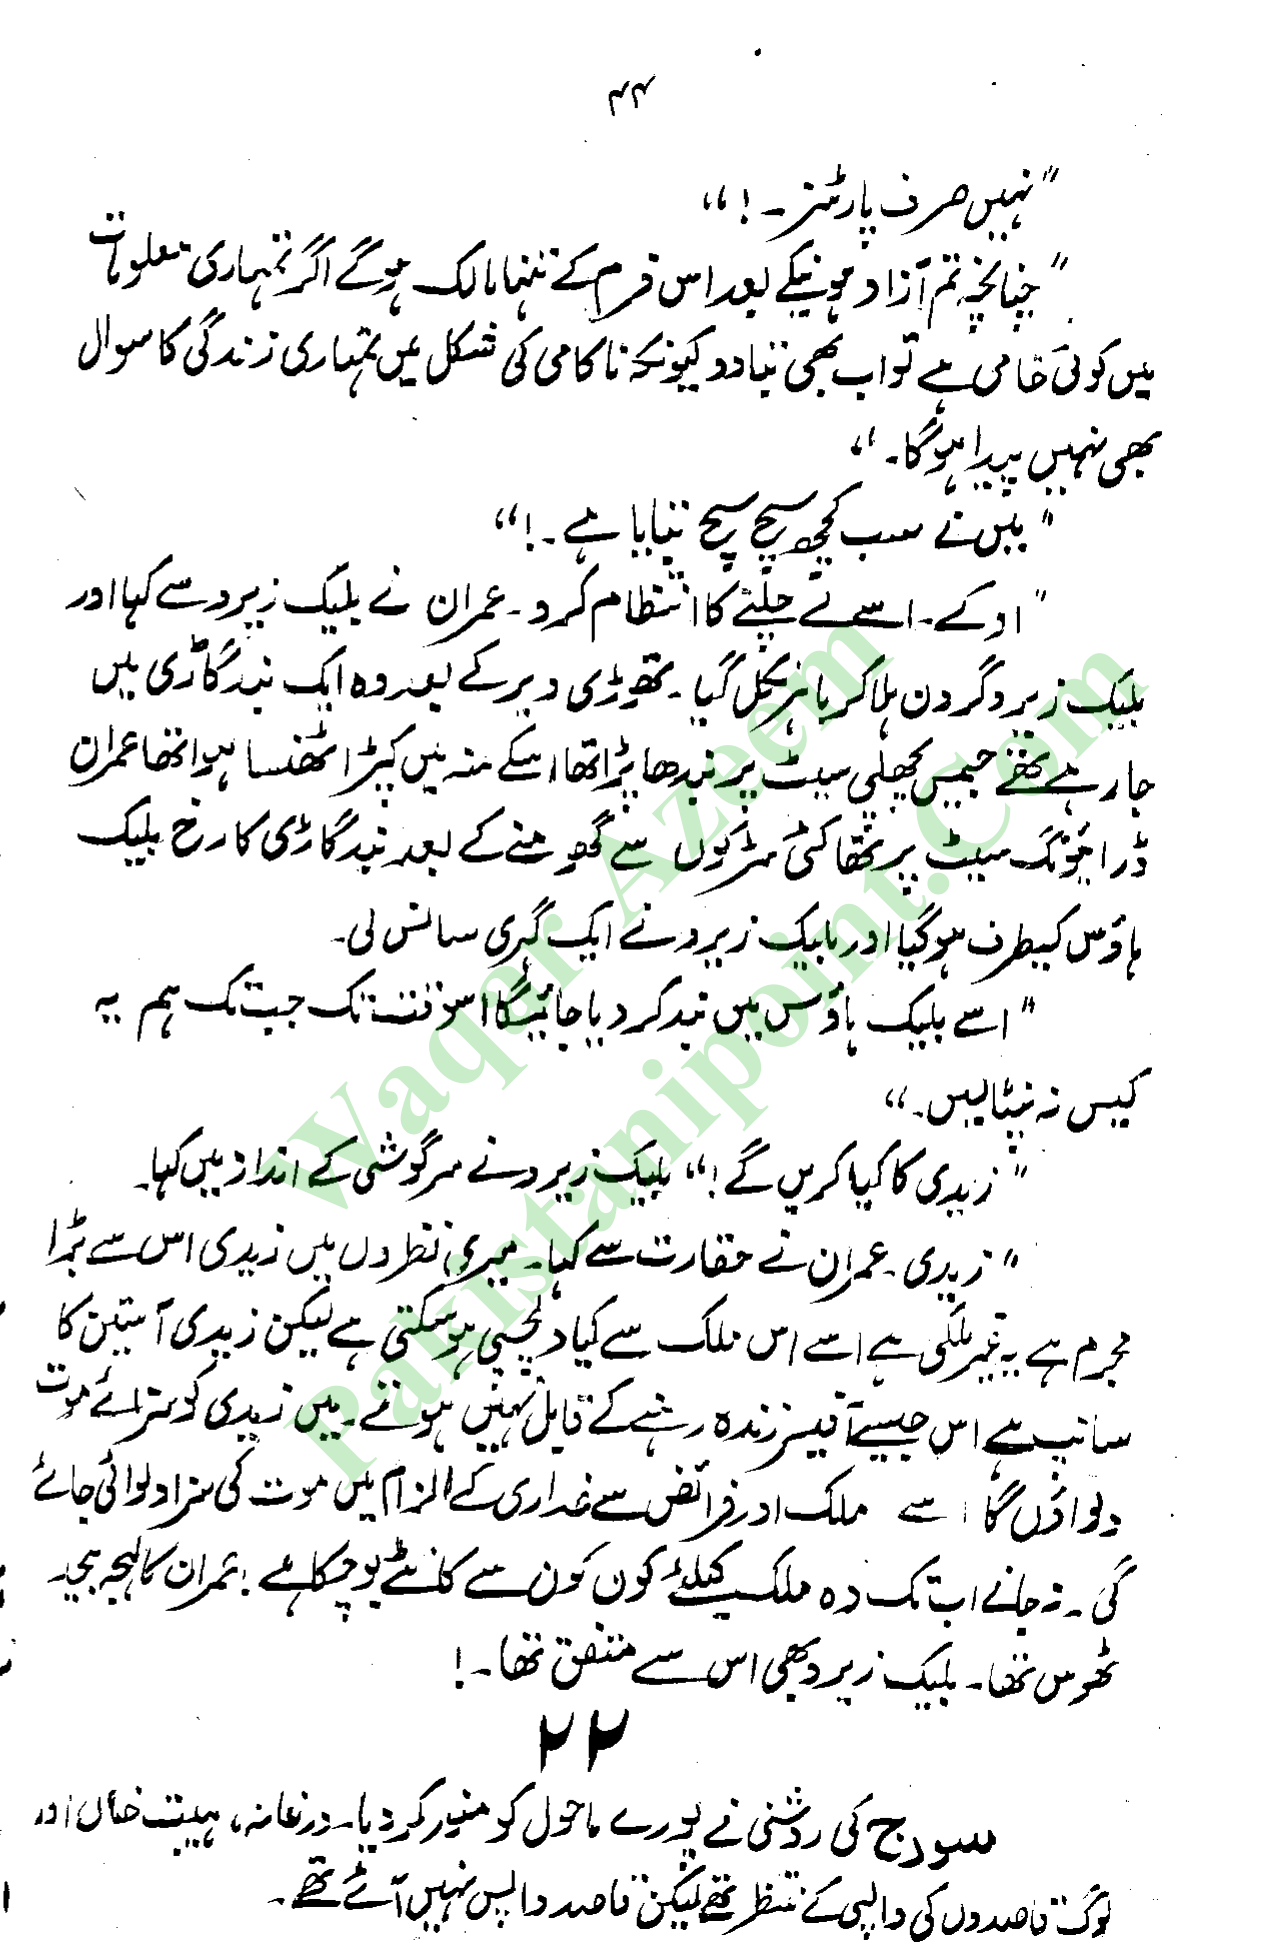 ۴۴
"نہیں صرف پارٹنر۔!"
"چنانچہ تم آزاد ہونیکے بعد اس فرم کے تنہا مالک ہوگے اگر تمہاری معلومات
میں کوئی خامی ہے تو اب بھی بتادو کیونکہ ناکامی کی شکل میں تمہاری زندگی کا سوال
بھی نہیں پیدا ہوگا۔"
"میں نے سب کچھ سچ سچ بتایا ہے۔!"
"اوکے۔ اسے لے چلنے کا انتظام کرو۔ عمران نے بلیک زیرو سے کہا اور
بلیک زیرو گردن ہلا کر باہر نکل گیا۔ تھوڑی دیر کے بعد وہ ایک بند گاڑی میں
جا رہے تھے جیمس پچھلی سیٹ پر بندھا پڑا تھا اسکے منہ میں کپڑا ٹھنسا ہوا تھا عمران
ڈرائیونگ سیٹ پر تھا کئی سڑکوں سے گھومنے کے بعد بند گاڑی کا رخ بلیک
ہاؤس کیطرف ہو گیا اور بلیک زیرو نے ایک گہری سانس لی۔
"اسے بلیک ہاؤس میں بند کر دیا جائیگا اسوقت تک جب تک ہم یہ
کیس نہ نپٹا لیں۔"
"زیدی کا کیا کریں گے!" بلیک زیرو نے سرگوشی کے انداز میں کہا۔
"زیدی۔ عمران نے حقارت سے کہا۔ میری نظروں میں زیدی اس سے بڑا
مجرم ہے یہ غیر ملکی ہے اسے اس ملک سے کیا دلچسپی ہو سکتی ہے لیکن زیدی آستین کا
سانپ ہے اس جیسے آفیسر زندہ رہنے کے قابل نہیں ہوتے۔ میں زیدی کو سزائے موت
دلواؤں گا اسے ملک اور فرائض سے غداری کے الزام میں موت کی سزا دلوائی جائے
گی۔ نہ جانے اب تک وہ ملک کیلئے کون کون سے کانٹے بو چکا ہے! عمران کا لہجہ بیحد
ٹھوس تھا۔ بلیک زیرو بھی اس سے متفق تھا۔!
۲۲
سورج کی روشنی نے پورے ماحول کو منیر کر دیا۔ درغانہ، ہیبت خاں اور
لوگ قاصدوں کی واپسی کے منتظر تھے لیکن قاصد واپس نہیں آئے تھے۔
Waqar Azeem
Pakistanipoint.Com